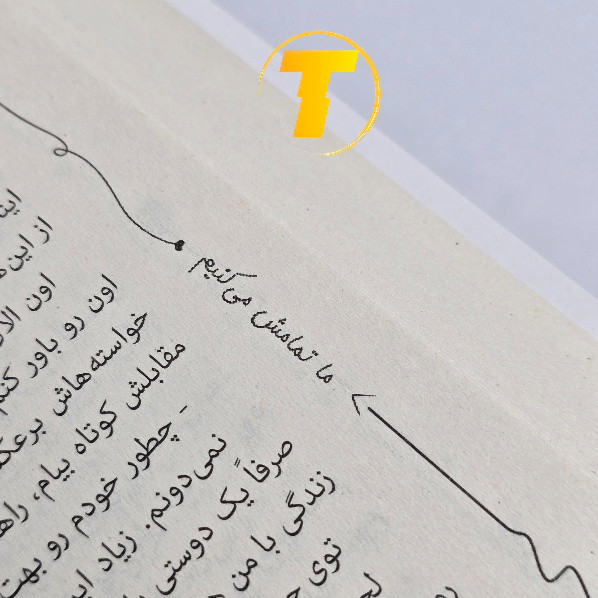 T
ما تمامش می‌کنیم
این
از این
اون
اون رو باور
خواسته‌هاش
مقابلش کوتاه بیام،
- چطور خودم رو بهت
نمی‌دونم. زیاد
صرفاً یک دوستی
زندگی با من
توی